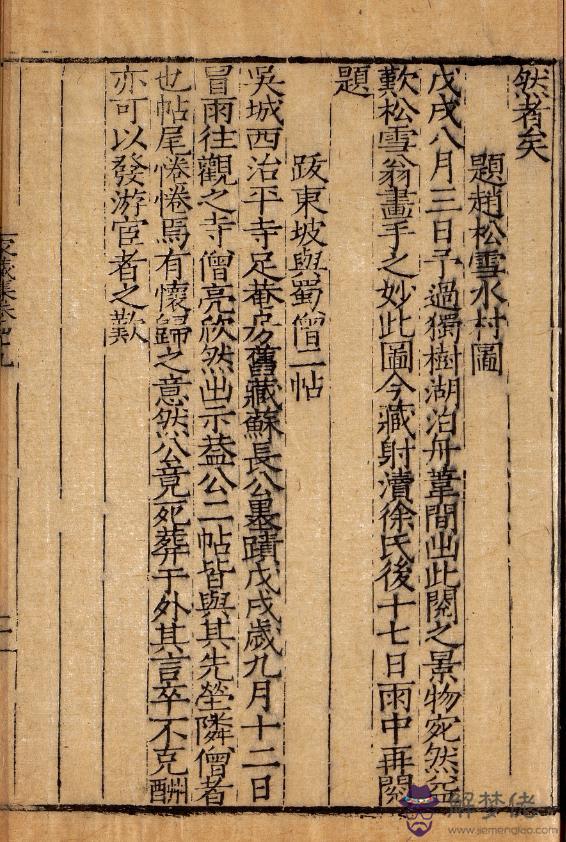 然者矣
題趙松雪水村圖
戊戌八月三日予過獨樹湖泊舟葦間出此閱之景物宛然益
歎松雪翁畫手之妙此圖今藏射瀆徐氏後十七日雨中再閱
題
跋東坡與蜀僧二帖
吳城西治平寺足菴房舊藏蘇長公墨蹟戊戌歲九月十二日
冒雨往觀之寺僧亮欣然出示葢公二帖皆與其先塋隣僧者
也帖尾惓惓焉有懷歸之意然公竟死葬于外其言卒不克酬
亦可以發游宦者之歎
藏集卷
九
解梦佬
www.jiemenglao.com